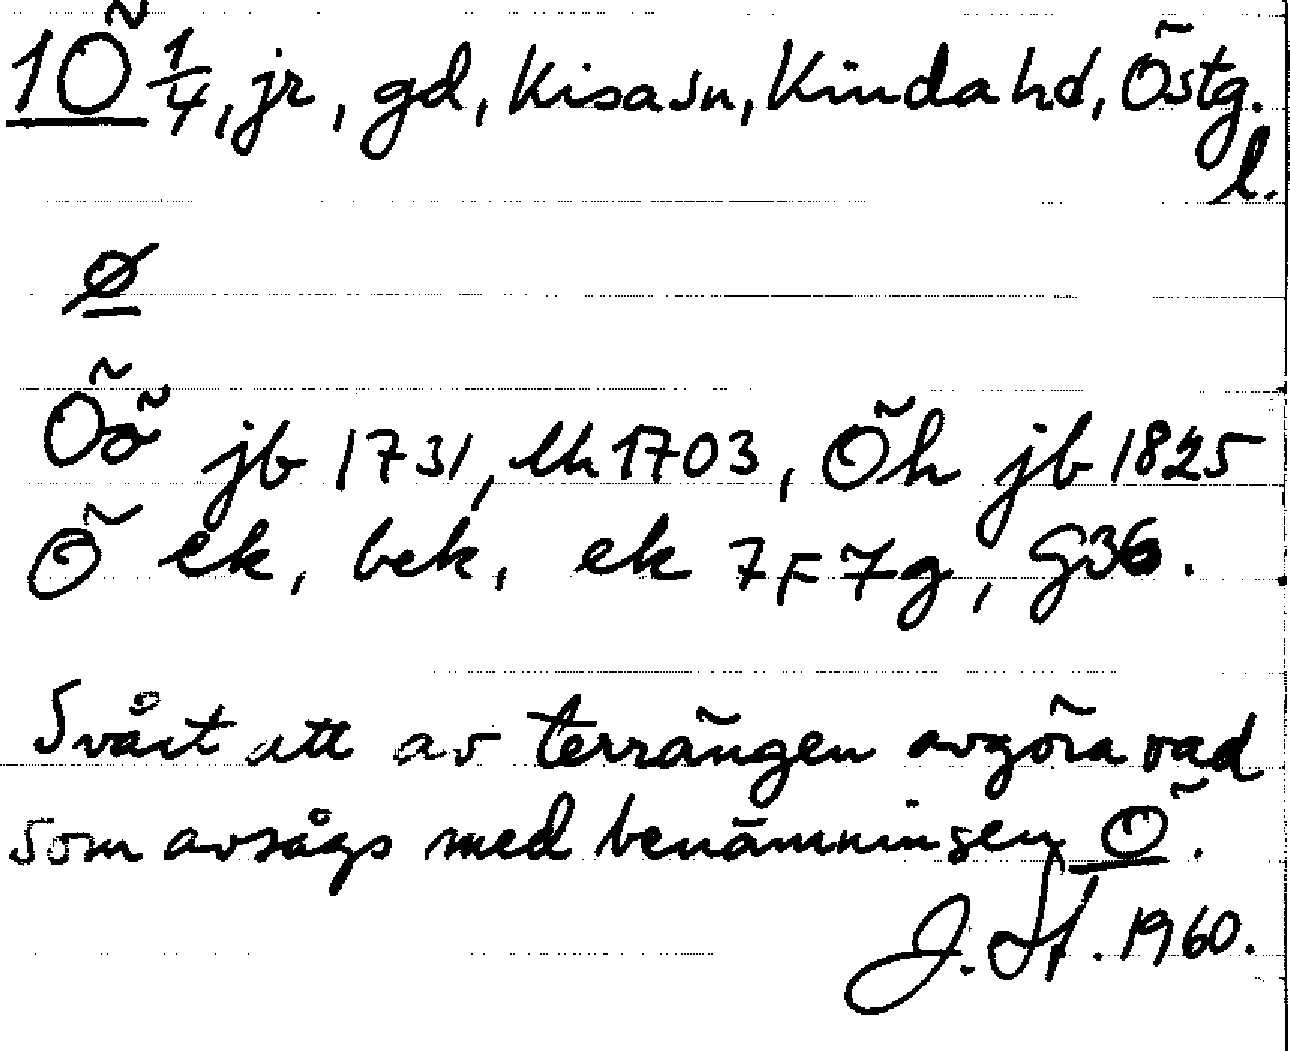 1 Ö 1/4, jr, gd, Kisa sn, Kinda hd, Östg.
l.
ø
Öö jb 1731, lk 1703, Öh jb 1825
Ö ek, bek, ek 7F7g, G36.
Svårt att av terrängen avgöra vad
som avsågs med benämningen Ö.
J. H. 1960.